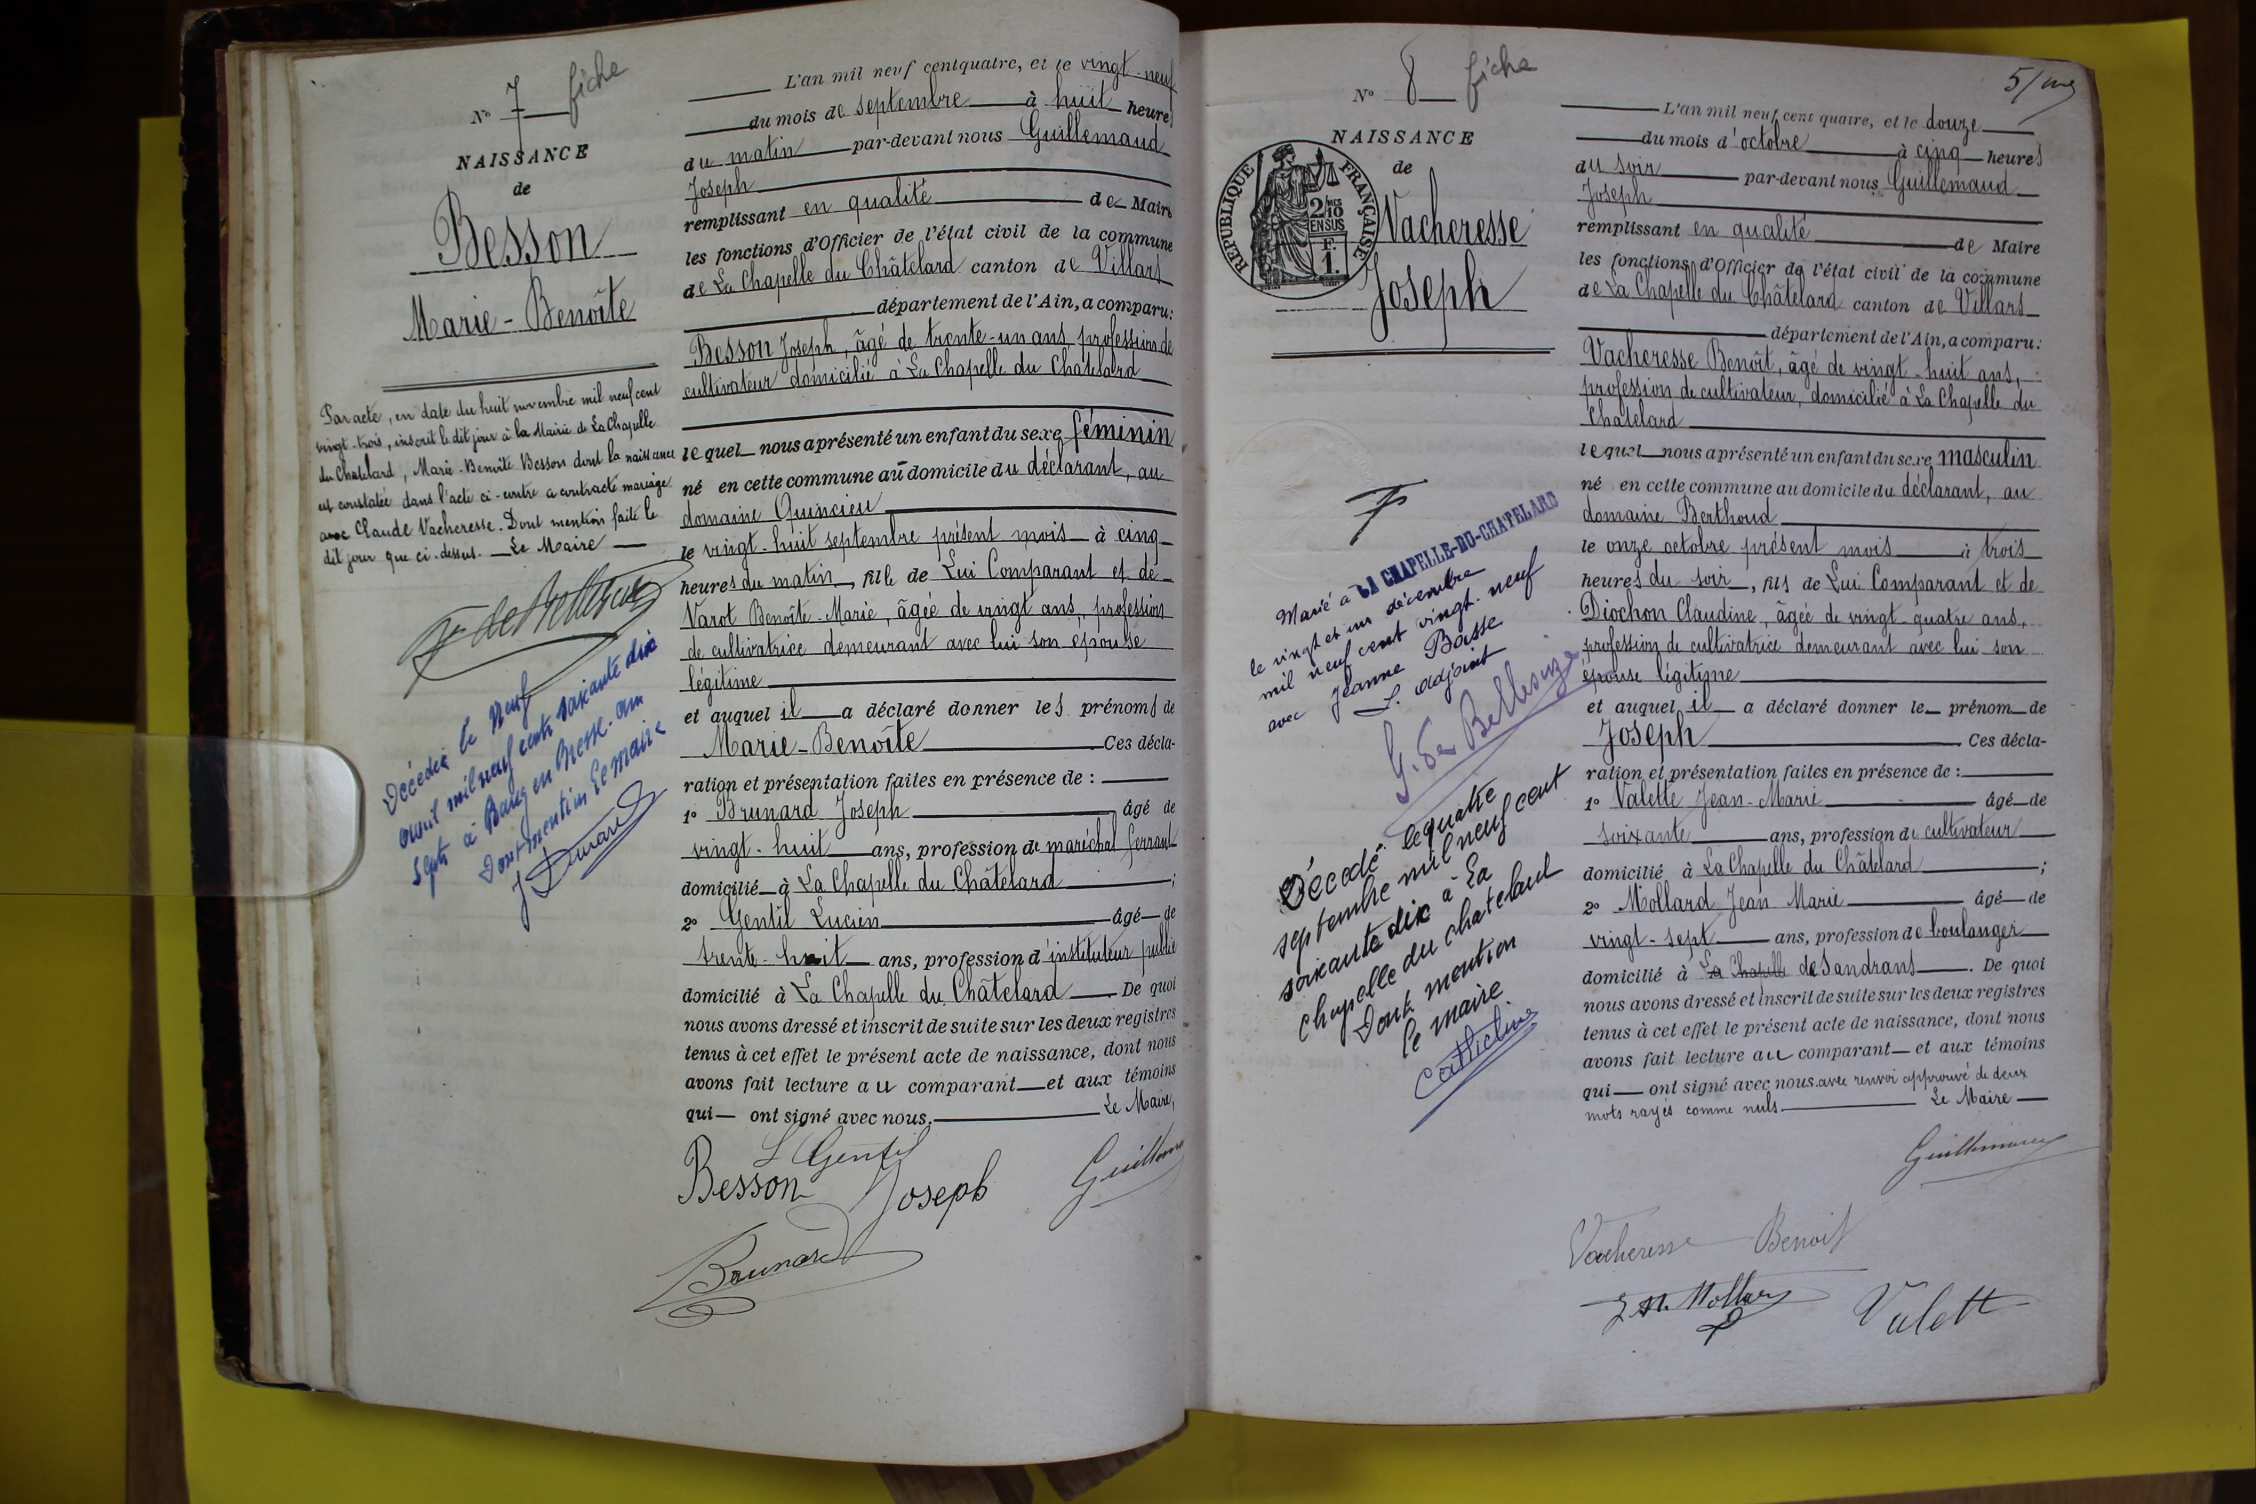 N° 7 fiche
NAISSANCE
de
Besson
Marie-Benoîte
Par acte, en date du huit novembre mil neuf cent
vingt-trois, inscrit le dit jour à la Mairie de La Chapelle
du Chatelard, Marie-Benoîte Besson dont la naissance
est constatée dans l'acte ci-contre a contracté mariage
avec Claude Vacheresse. Dont mention faite le
dit jour que ci-dessus. Le Maire
Décédée le neuf
avril mil neuf cent soixante dix
sept à Baug en Bresse. Ain
Dont mention Le Maire
L'an mil neuf cent quatre, et le vingt-neuf
du mois de septembre à huit heures
du matin par-devant nous Guillemaud
Joseph
remplissant en qualité de Maire
les fonctions d'Officier de l'état civil de la commune
de La Chapelle du Châtelard canton de Villars
département de l'Ain, a comparu:
Besson Joseph, âgé de trente-un ans profession de
cultivateur domicilié à La Chapelle du Chatelard
lequel nous a présenté un enfant du sexe féminin
né en cette commune au domicile du déclarant, au
domaine Quincieu
le vingt-huit septembre présent mois à cinq
heures du matin, fille de Lui Comparant et de
Varot Benoîte-Marie, âgée de vingt ans, profession
de cultivatrice demeurant avec lui son épouse
légitime
et auquel il a déclaré donner les prénoms de
Marie-Benoîte Ces décla-
ration et présentation faites en présence de :
1° Brunard Joseph âgé de
vingt-huit ans, profession de maréchal ferrant
domicilié à La Chapelle du Châtelard ;
2° Gentil Lucien âgé de
trente-huit ans, profession d'instituteur public
domicilié à La Chapelle du Châtelard De quoi
nous avons dressé et inscrit de suite sur les deux registres
tenus à cet effet le présent acte de naissance, dont nous
avons fait lecture au comparant et aux témoins
qui ont signé avec nous. Le Maire,
L Gentil
Besson Joseph
Brunard
N° 8 fiche
NAISSANCE
de
Vacheresse
Joseph
REPUBLIQUE FRANÇAISE
2/10
EN SUS
F.
1.
Marié a LA CHAPELLE-DU-CHATELARD
le vingt et un décembre
mil neuf cent vingt-neuf
avec Jeanne Basse
L. adjoint
Décédé le quatre
septembre mil neuf cent
soixante dix à La
Chapelle du chatelard
Dont mention
le maire
5/
L'an mil neuf cent quatre, et le douze
du mois d'octobre à cinq heures
du soir par-devant nous Guillemaud
Joseph
remplissant en qualité de Maire
les fonctions d'Officier de l'état civil de la commune
de La Chapelle du Châtelard canton de Villars
département de l'Ain, a comparu:
Vacheresse Benoît, âgé de vingt-huit ans,
profession de cultivateur, domicilié à La Chapelle du
Chatelard
lequel nous a présenté un enfant du sexe masculin
né en cette commune au domicile du déclarant, au
domaine Berthoud
le onze octobre présent mois à trois
heures du soir, fils de Lui Comparant et de
Diochon Claudine, âgée de vingt-quatre ans,
profession de cultivatrice demeurant avec lui son
épouse légitime
et auquel il a déclaré donner le prénom de
Joseph Ces décla-
ration et présentation faites en présence de :
1° Valette Jean-Marie âgé de
soixante ans, profession de cultivateur
domicilié à La Chapelle du Châtelard ;
2° Mollard Jean Marie âgé de
vingt-sept ans, profession de boulanger
domicilié à La Chapelle de Sandrans. De quoi
nous avons dressé et inscrit de suite sur les deux registres
tenus à cet effet le présent acte de naissance, dont nous
avons fait lecture au comparant et aux témoins
qui ont signé avec nous. avec renvoi approuvé de deux
mots rayés comme nuls Le Maire
Vacheresse Benoit
J M. Mollard
Valett